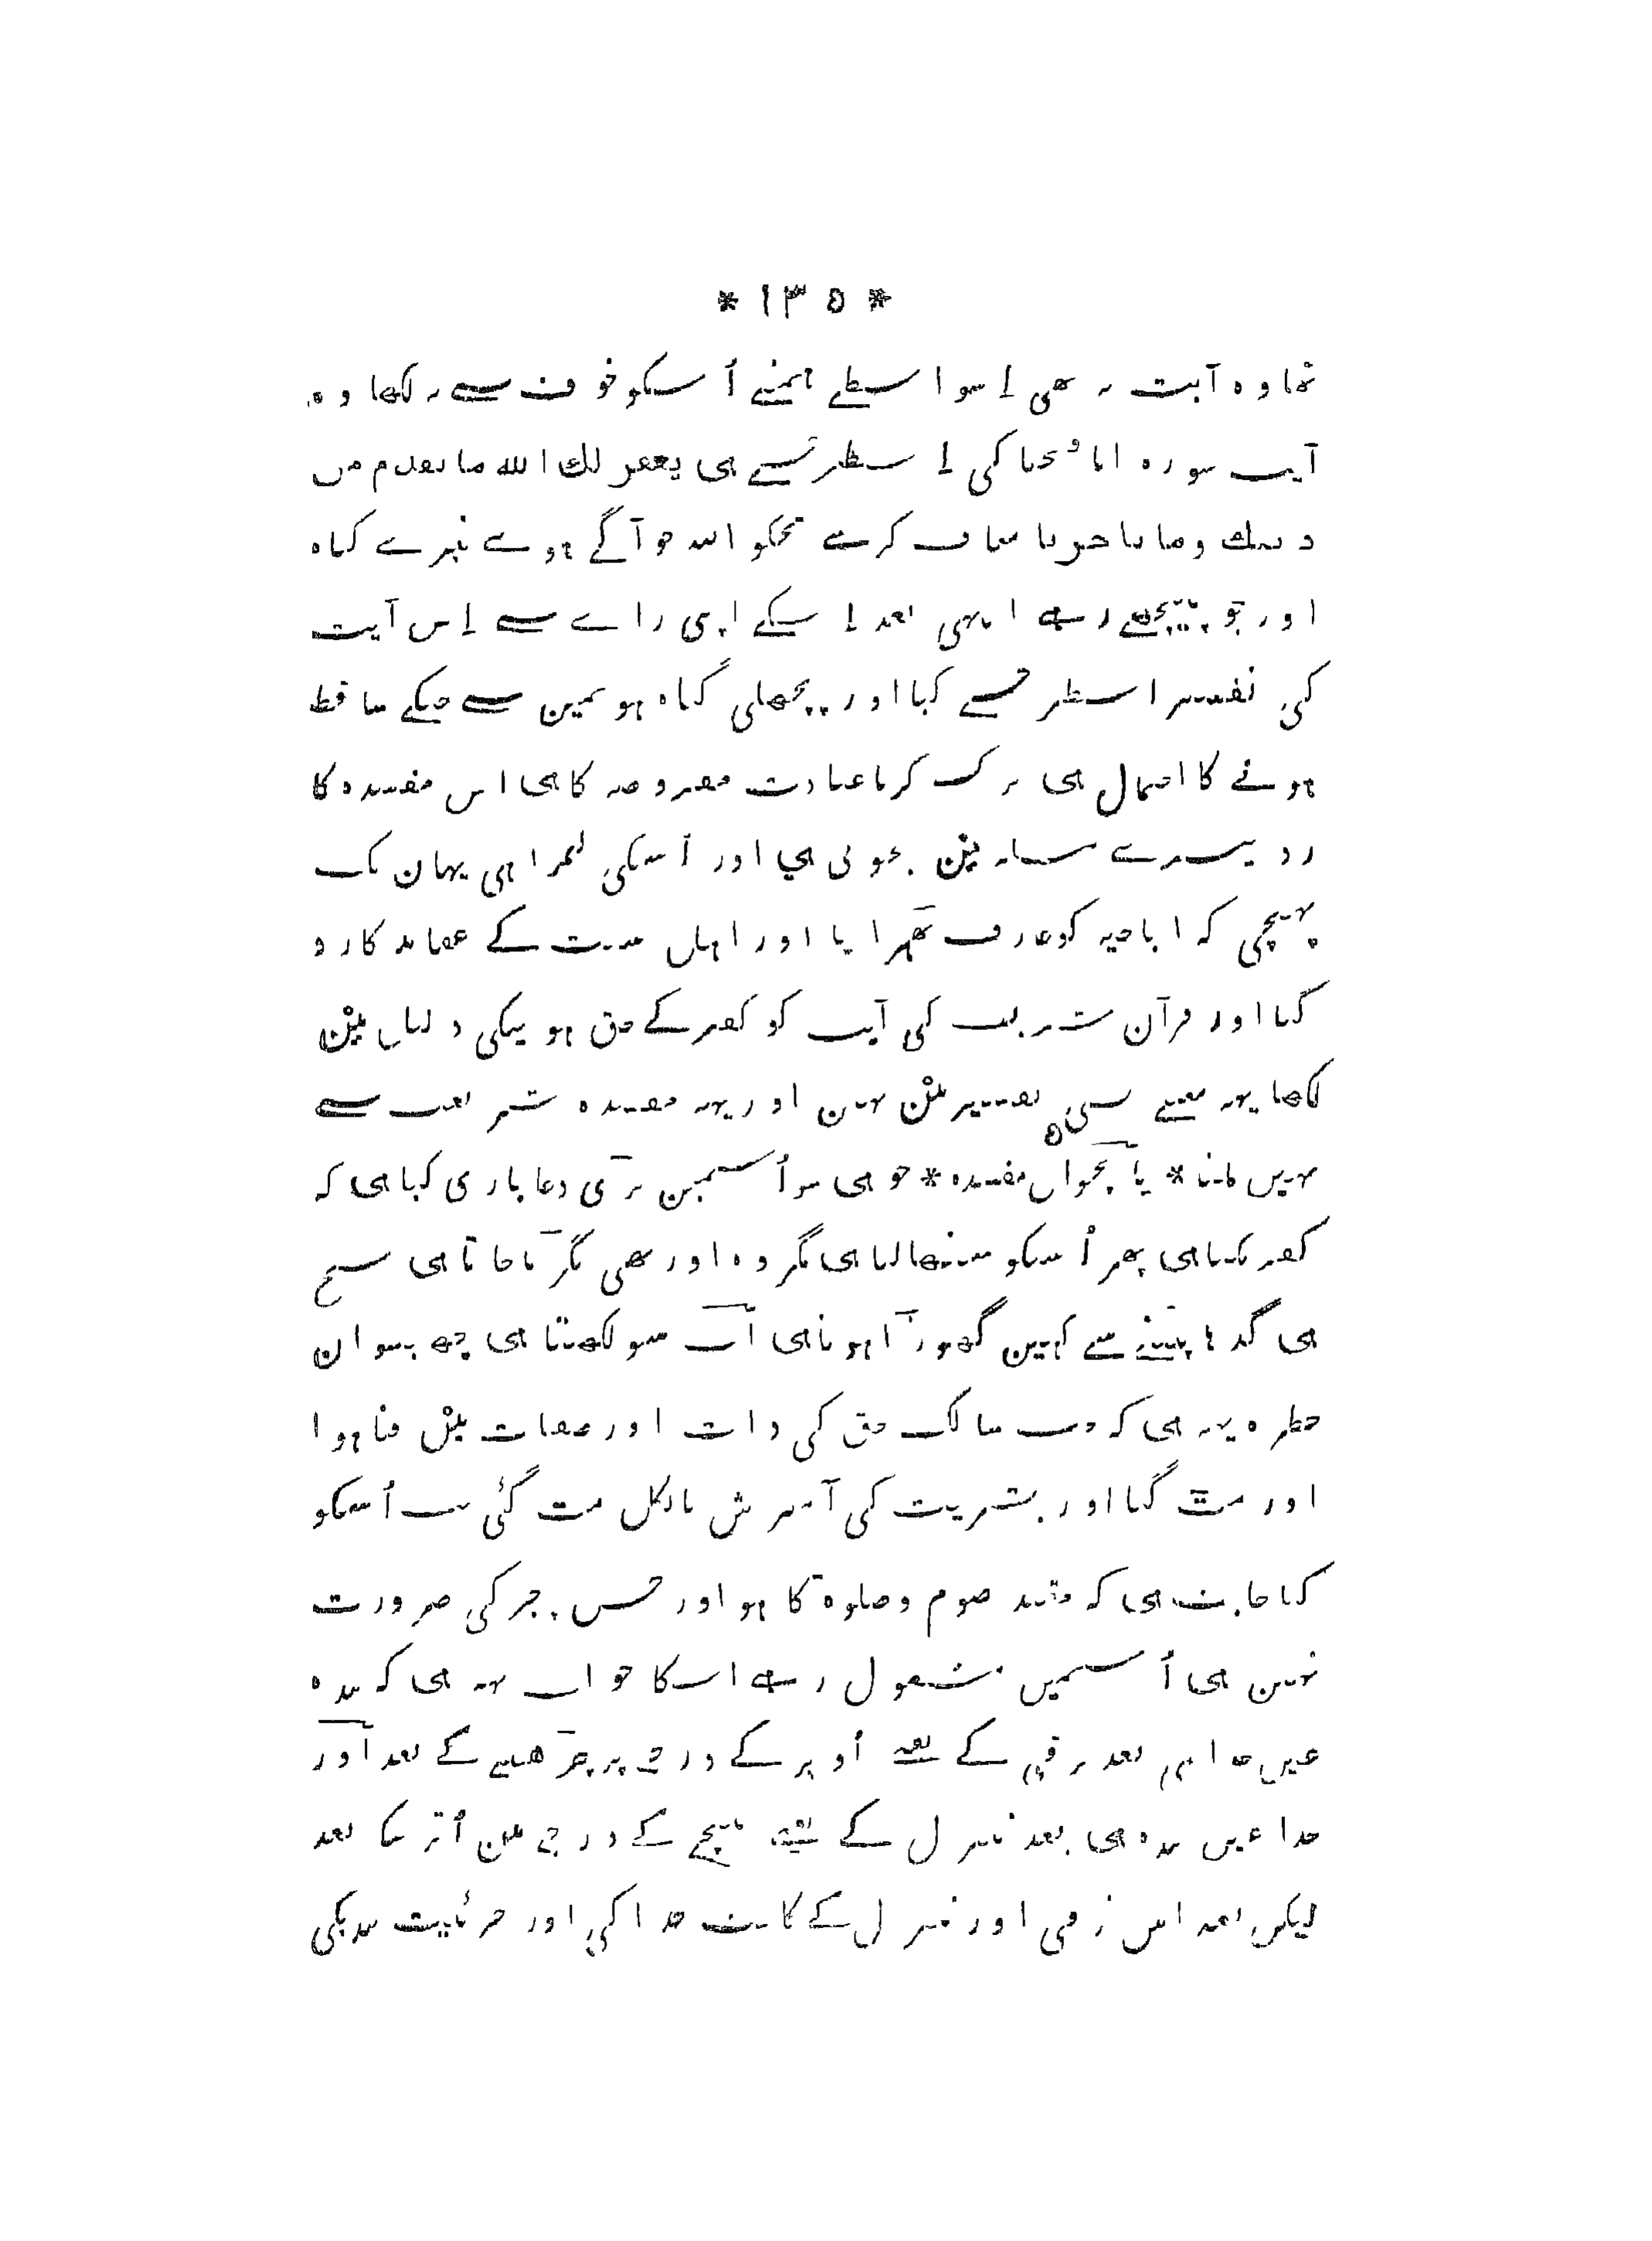 * ١٣٥ *
تھا وہ آیت نہ تھی اِسواسطے ہمنے اُسکو خوف سے نہ لکھا وہ
آیت سورہ انا فتحنا کی اِسطرحسے ہی یغفر لك الله ما تقدم من
ذنبك وما تاخر یا معاف کرے تجکو اللہ جو آگے ہوے تیرے گناہ
اور جو پیچھے رہے انتہی بعد اِسکے اپنی راے سے اِس آیت
کی تفسیر اسطرحسے کیا اور پچھلی گناہ ہونمین سے جسکے ساقط
ہونے کا احتمال ہی ترک کرنا عبادت مفروضہ کا ہی اس مفسدہ کا
رد تیسرے مین بخوبی ہی اور اُسکی گمراہی یہان تک
پہنچی کہ اباحیہ کو عارف ٹھہرایا اور اہل سنت کے عقائد کا رد
کیا اور قرآن شریف کی آیت کو کفر کے حق ہونیکی دلیل مین
لکھا یہہ معنے کسی تفسیر مین نہین اور یہہ مفسدہ شریعت سے
نہین ملتا * پانچوان مفسدہ * جو ہی سو اُسمین بڑی دعابازی کیا ہی کہ
کفر بکتا ہی پھر اُسکو سنبھالتا ہی مگر وہ اور بھی بگڑتا جاتا ہی سچ
ہی گدہا پیٹنے سے کہین گھوڑا ہوتا ہی اب سو لکھتا ہی چھبیسوان
خطرہ یہہ ہی کہ جب سالک حق کی ذات اور صفات مین فنا ہوا
اور مٹ گیا اور بشریت کی آمیزش بالکل مٹ گئی تب اُسکو
کیا حاجت ہی کہ مقید صوم و صلوۃ کا ہو اور جس چیز کی ضرورت
نہین ہی اُسمین مشغول رہے اسکا جواب یہہ ہی کہ بندہ
عین خدا ہی بعد ترقی کے یعنے اُوپر کے درجے پر چڑھنے کے بعد اور
خدا عین بندہ ہی بعد تنزل کے یعنے نیچے کے درجے مین اُترنیکا بعد
لیکن بعد اس ترقی اور تنزل کے کلیت خدا کی اور جزئیت بندیکی